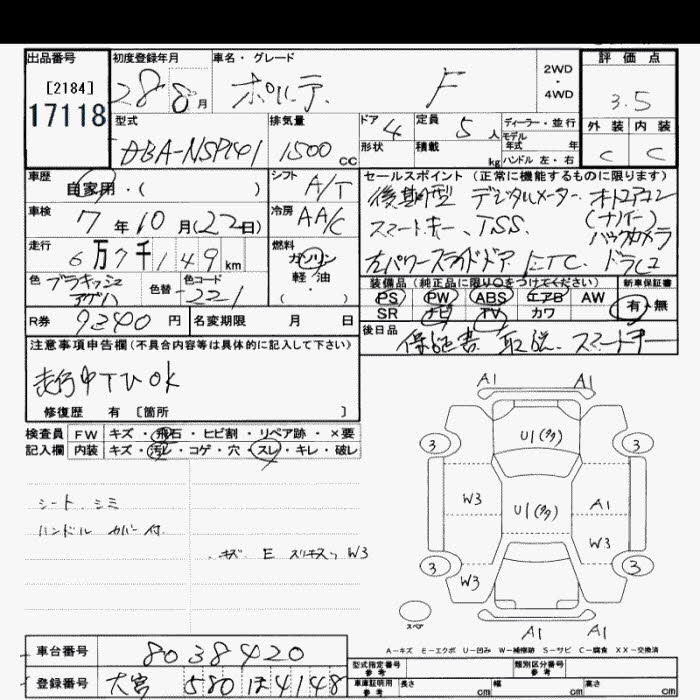 出品番号 初度登録年月 車名・グレード 評価点
[2184] 17118
28 8月 ポルテ F 2WD・4WD 3.5
型式 排気量 ドア 4 定員 5人 ディーラー・並行 外装 内装
DBA-NSP141 1500cc 形状 積載 kg モデル年式 年 ハンドル 左・右 C C
車歴 自家用・( ) シフト A/T セールスポイント(正常に機能するものに限ります)
車検 7年10月(22日) 冷房 AA/C 後期型 デジタルメーター オートエアコン
スマートキー、TSS. (ナノイー) バックカメラ
走行 6万7千149km 燃料 ガソリン 軽・油 ( ) 左パワースライドドア ETC. ドラレコ
色 色替 色コード 221 装備品(純正品に限り○をつけてください) 新車保証書
PS PW ABS エアB AW 有・無
SR ナビ TV カワ
R券 9240円 名変期限 月 日 後日品 保証書 取説. スマートキー
注意事項申告欄(不具合内容等は具体的に記入して下さい)
走行中TV OK
修復歴 有 [箇所 ]
検査員 FW キズ・飛石・ヒビ割・リペア跡・×要
記入欄 内装 キズ・汚レ・コゲ・穴・スレ・キレ・破レ
シート シミ
ハンドル カバー付
キズ E スリキズ W3
A1 A1
3 U1(多) 3
W3 U1(多) A1
W3
3 W3 3
スペア A1 A1
A-キズ E-エクボ U-凹み W-補修跡 S-サビ C-腐食 XX-交換済
車台番号 8038420 型式指定番号 参考 類別区分番号 参考
登録番号 大宮 580 ほ 4148 車庫証明用 参考 長さ cm 幅 cm 高さ cm